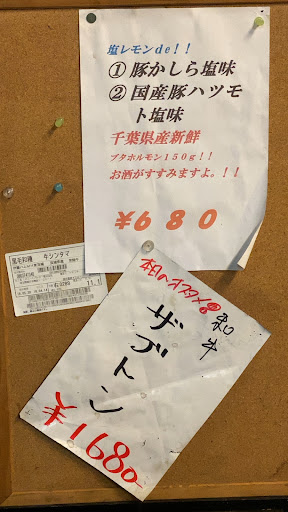 塩レモンde!!
①豚かしら塩味
②国産豚ハツモ
ト塩味
千葉県産新鮮
ブタホルモン150g!!
お酒がすすみますよ。!!
¥680
黒毛和種 牛シンタマ
本日のオススメ
和牛
ザブトン
¥1680-